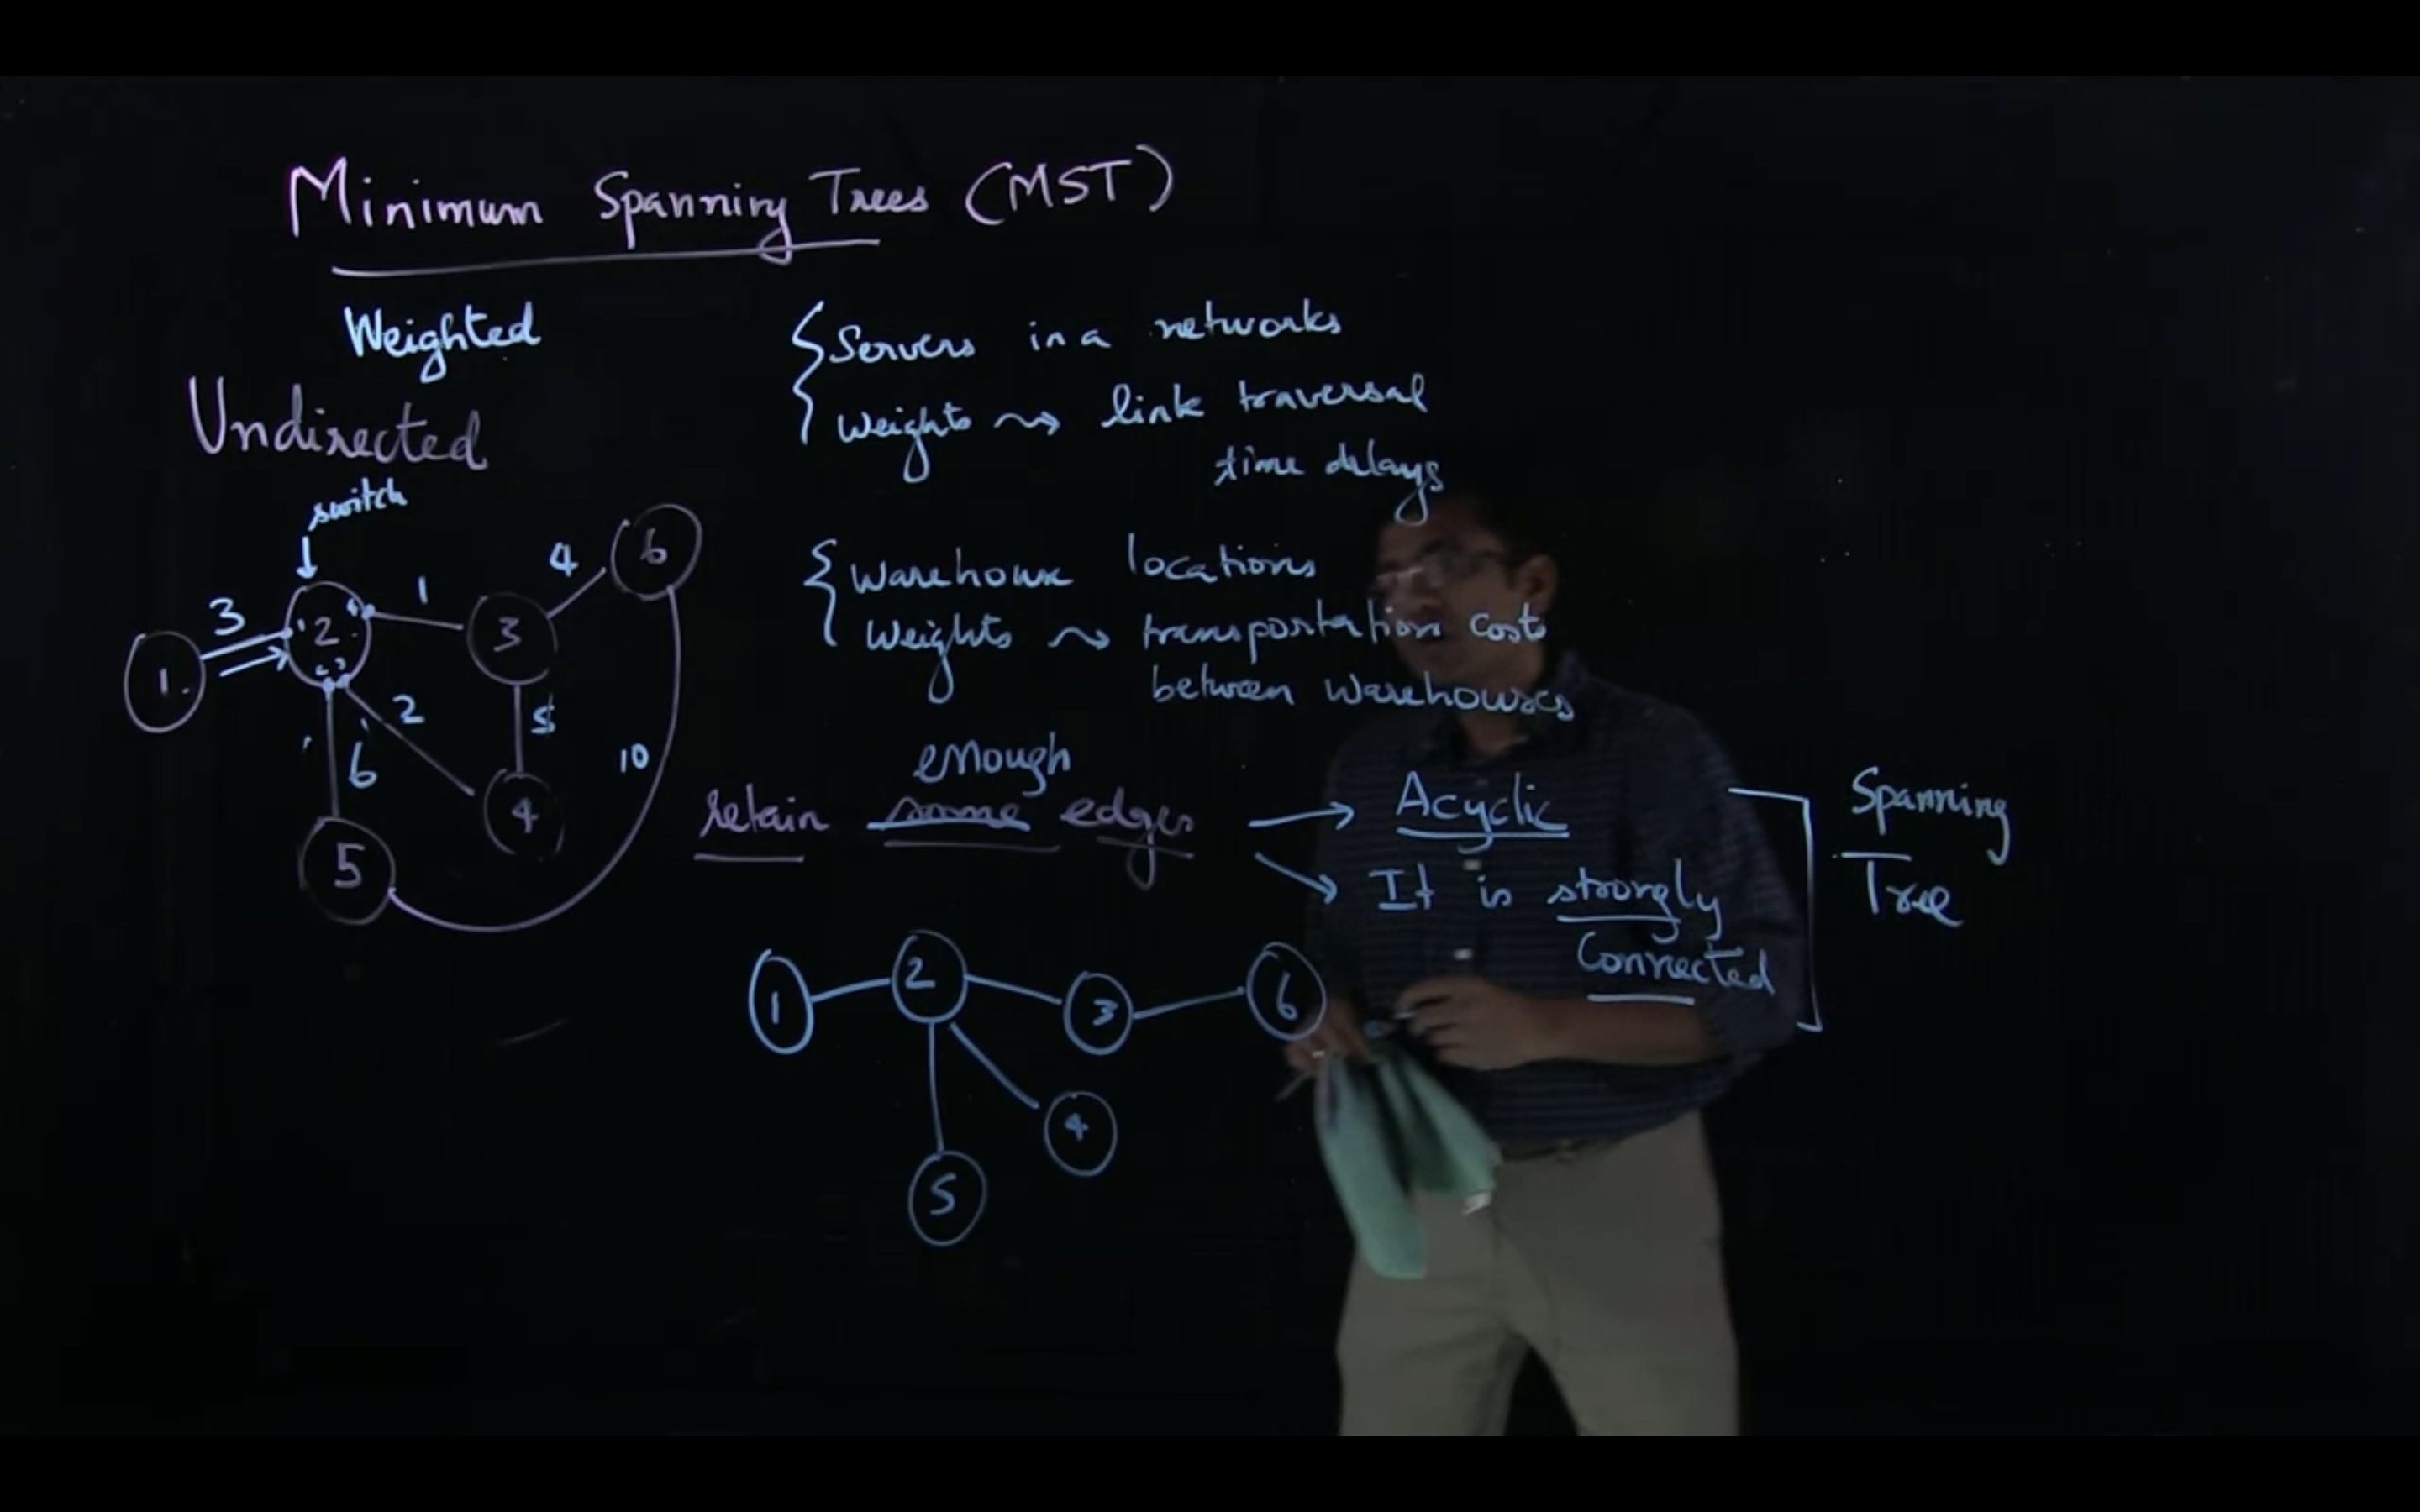 Minimum Spanning Trees (MST)
Weighted
Undirected
switch
Servers in a networks
Weights ⇝ link traversal
time delays
Warehouse locations
Weights ⇝ transportation costs
between warehouses
3
1
4
6
2
3
1.
2
5
6
10
5
4
enough
retain some edges → Acyclic
→ It is strongly
connected
Spanning
Tree
1
2
3
6
4
5